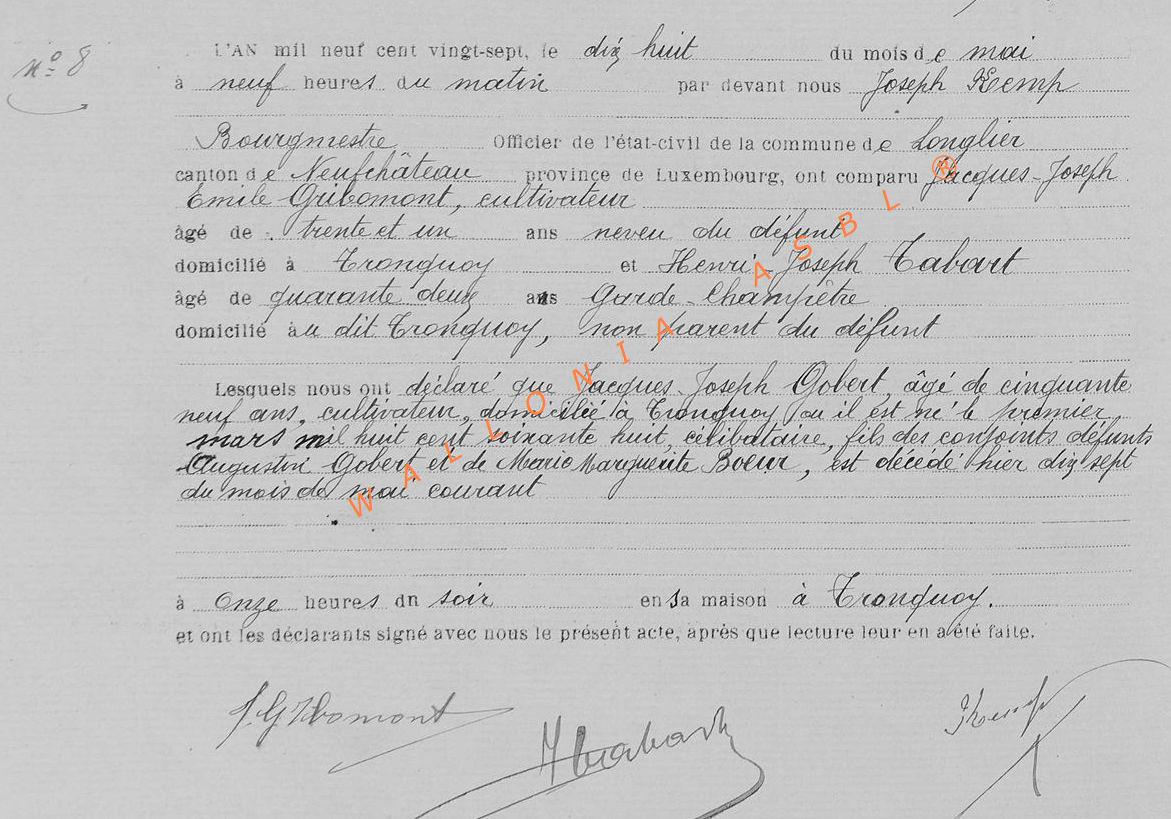 n° 8
L'AN mil neuf cent vingt-sept, le dix huit du mois de mai
à neuf heures du matin par devant nous Joseph Kemp
Bourgmestre Officier de l'état-civil de la commune de Longlier
canton de Neufchâteau province de Luxembourg, ont comparu Jacques-Joseph
Emile Gribomont, cultivateur
âgé de trente et un ans neveu du défunt
domicilié à Tronquoy et Henri-Joseph Tabart
âgé de quarante deux ans Garde-Champêtre
domicilié àu dit Tronquoy, non parent du défunt
Lesquels nous ont déclaré que Jacques-Joseph Gobert, âgé de cinquante
neuf ans, cultivateur, domicilié à Tronquoy ou il est né le premier
mars mil huit cent soixante huit, célibataire, fils des conjoints défunts
Augustin Gobert et de Marie Marguerite Boeur, est décédé hier dix sept
du mois de mai courant
à Onze heures du soir en sa maison à Tronquoy.
et ont les déclarants signé avec nous le présent acte, après que lecture leur en a été faite.
J. Gribomont
H Tabart
Kemp
WALLONIA ASBL ®